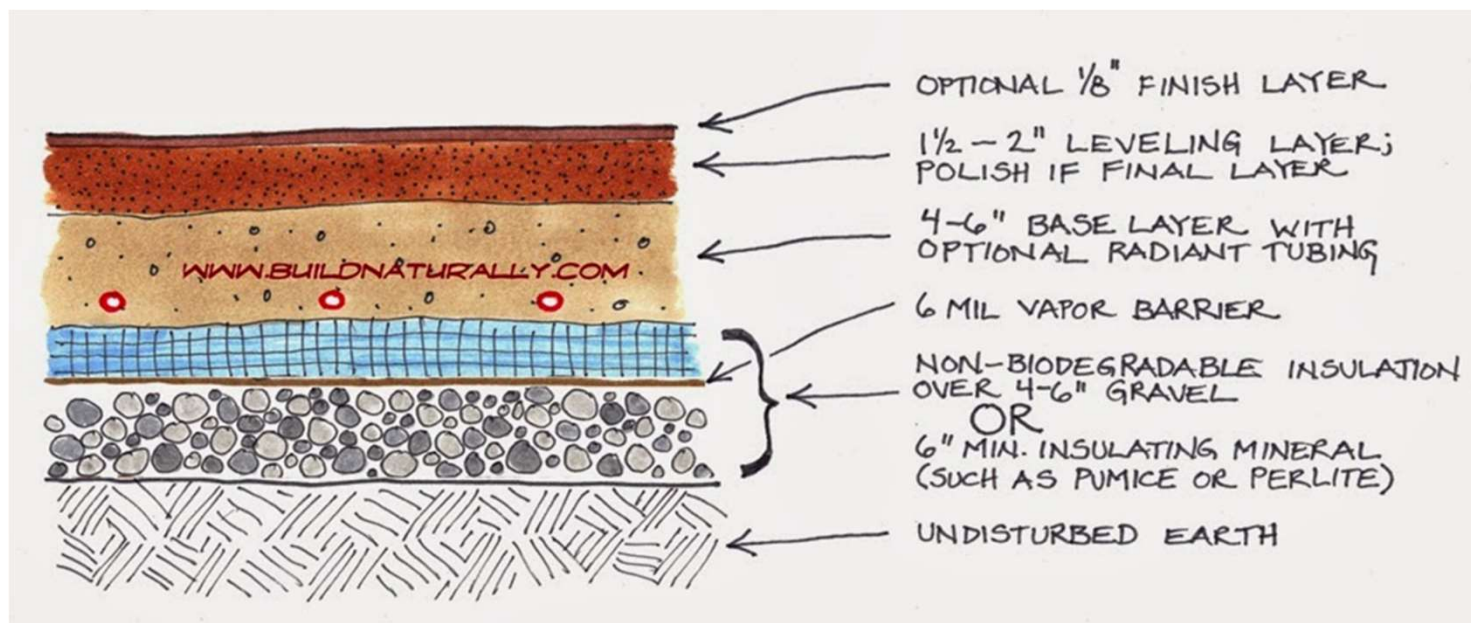 OPTIONAL 1/8" FINISH LAYER
1½ – 2" LEVELING LAYER;
POLISH IF FINAL LAYER
4–6" BASE LAYER WITH
OPTIONAL RADIANT TUBING
WWW.BUILDNATURALLY.COM
6 MIL VAPOR BARRIER
NON-BIODEGRADABLE INSULATION
OVER 4-6" GRAVEL
OR
6" MIN. INSULATING MINERAL
(SUCH AS PUMICE OR PERLITE)
UNDISTURBED EARTH